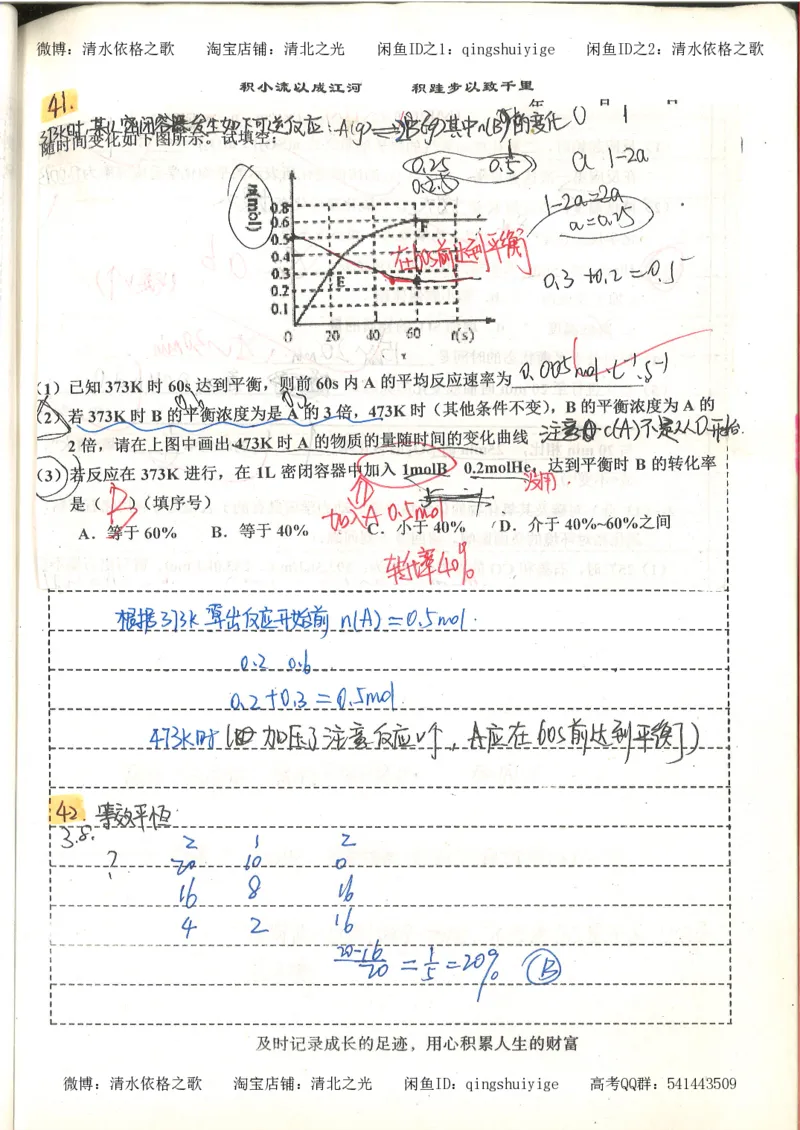 微博：清水依格之歌 淘宝店铺：清北之光 闲鱼ID之1：qingshuiyige 闲鱼ID之2：清水依格之歌
积小流以成江河 积跬步以致千里
年 月 日
41.
373K时,某1L密闭容器发生如下可逆反应：A(g)⇌2B(g)其中n(B)的变化
随时间变化如下图所示。试填空：
0 1
a 1-2a
1-2a=2a
a=0.25
0.25 0.5
0.25
0.3+0.2=0.5
n(mol)
0.8
0.6
0.5
0.4
0.3
0.2
0.1
0 20 40 60 t(s)
E
F
在60s前达到平衡
(1) 已知 373K 时 60s 达到平衡，则前 60s 内 A 的平均反应速率为 0.005mol·L⁻¹·s⁻¹
0.2 0.6
(2) 若 373K 时 B 的平衡浓度为是 A 的 3 倍，473K 时（其他条件不变），B 的平衡浓度为 A 的
2 倍，请在上图中画出 473K 时 A 的物质的量随时间的变化曲线 注意 c(A)不是从0开始.
(3) 若反应在 373K 进行，在 1L 密闭容器中加入 1molB 0.2molHe，达到平衡时 B 的转化率
没用.
是（ B ）（填序号）
加入A 0.5mol
A．等于 60% B．等于 40% C．小于 40% D．介于 40%~60%之间
转化率40%
根据373K 算出反应开始前 n(A)=0.5mol.
0.2 0.6
0.2+0.3=0.5mol
473K时(加压了注意反应v↑，A应在60s前达到平衡了)
42. 等效平恒
3.8.
2 1 2
? 20 10 0
16 8 16
4 2 16
20-16/20=1/5=20% B
及时记录成长的足迹，用心积累人生的财富
微博：清水依格之歌 淘宝店铺：清北之光 闲鱼ID：qingshuiyige 高考QQ群：541443509